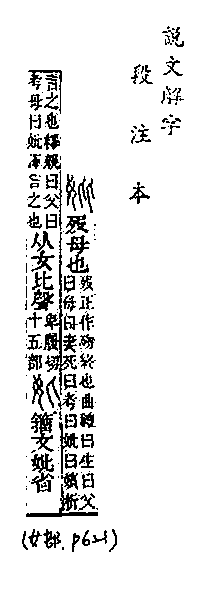 說文解字
段注本
歿母也
歿正作歾終也曲禮曰生曰父
曰母曰妻死曰考曰妣曰嬪析
言之也釋親曰父曰
考母曰妣渾言之也
从女比聲
卑履切
十五部
籒文妣省
(女部. p621)